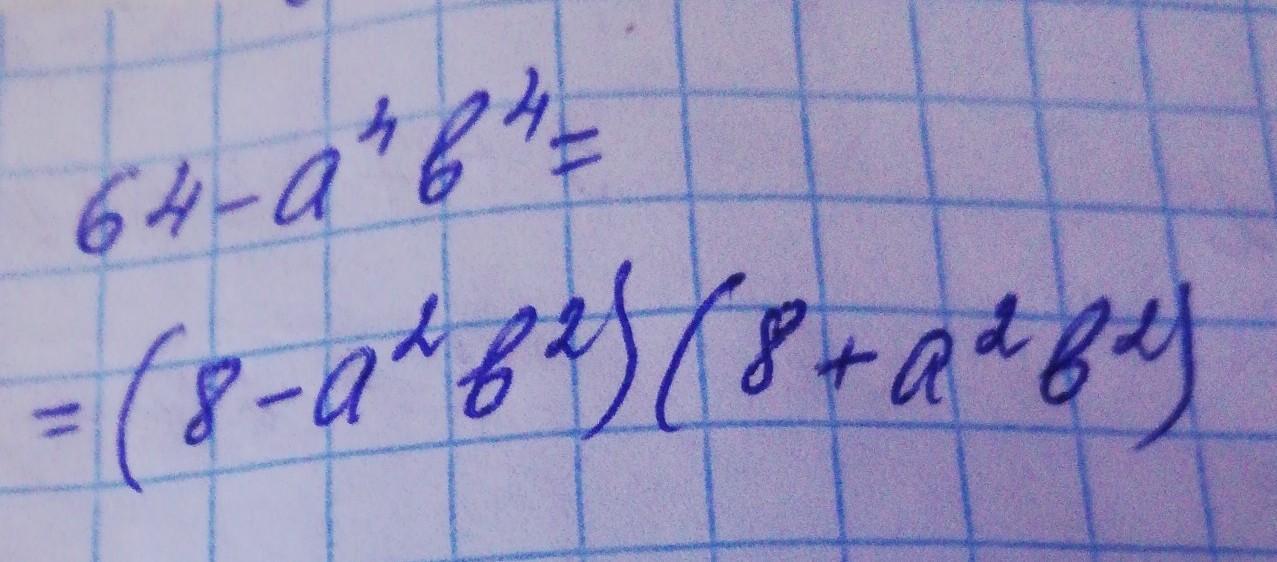 64-a⁴b⁴=
=(8-a²b²)(8+a²b²)